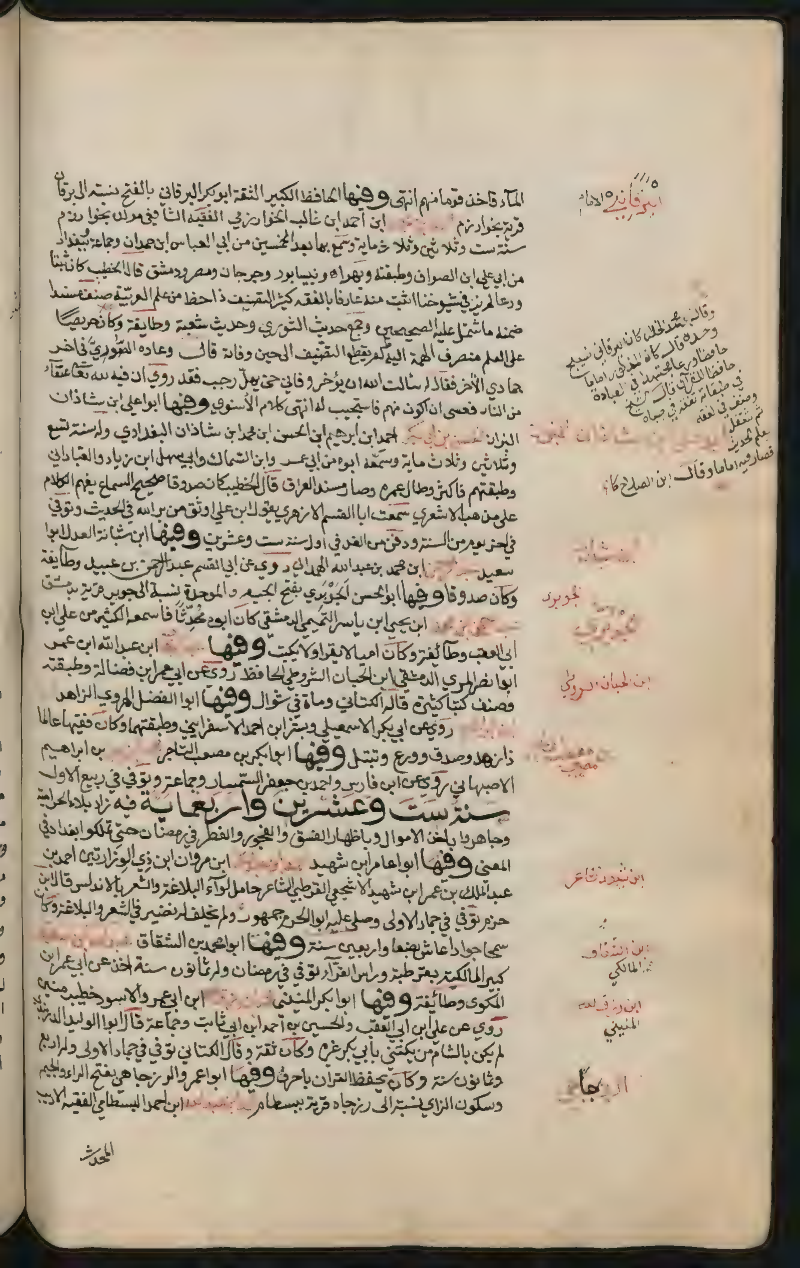 الماء فاخذ قوما منهم انتهى وفيها الحافظ الكبير الثقة ابو بكر البرقاني بالفتح نسبة الى برقان
قرية بخوارزم ابن احمد ابن غالب الخوارزمي الفقيه الشافعي مولده بخوارزم
سنة ست وثلاثين وثلاثماية وسمع بها بعد الخمسين من ابي العباس ابن حمدان وجماعة وببغداد
من ابي علي ابن الصواف وطبقته وبهراه ونيسابور وجرجان ومصر ودمشق قال الخطيب كان ثبتا
ورعا لم نر في شيوخنا اثبت منه عارفا بالفقه كثير التصنيف ذا حظ من علم العربية صنف مسندا
ضمنه ما اشتمل عليه الصحيحين وجمع حديث الثوري وحديث شعبة وطايفة وكان حريصا
على العلم منصرف الهمة اليه لم يقطع التصنيف الى حين وفاته قال وعاده الصوري في اخر
جمادي الآخر فقال له سالت الله ان يؤخر وفاتي حتى يهل رجب فقد روي ان فيه لله تعالى عتقاء
من النار فعسى ان اكون منهم فاستجيب له انتهى كلام الأسنوي وفيها ابو علي ابن شاذان
البزاز الحسن بن ابي بكر احمد ابن ابرهيم ابن الحسن ابن محمد ابن شاذان البغدادي ولد سنة تسع
وثلاثين وثلاث ماية وسمعه ابوه من ابي عمر وابن السماك وابي سهل ابن زياد والعباداني
وطبقتهم فاكثر وطال عمره وصار مسند العراق قال الخطيب كان صدوقا صحيح السماع يفهم الكلام
على مذهب الاشعري سمعت ابا القسم الازهري يقول ابن علي اوثق من برأ الله في الحديث وتوفي
في اخر يوم من السنة ودفن من الغد في اول سنة ست وعشرين وفيها ابن شبانة العدل ابو
سعيد عبد الرحمن ابن محمد بن عبد الله الهمداني روي عن ابي القسم عبد الرحمن بن عبيد وطايفة
وكان صدوقا وفيها ابو الحسن الجوبري بفتح الجيم والموحدة نسبة الى جوبر قرية بدمشق
ابن يحيى ابن ياسر التميمي الدمشقي كان ابوه محدثا فاسمعه الكثير من علي ابن
ابي العقب وطايفة وكان اميا لا يقرا ولا يكتب وفيها ابن عبد الله ابن عمر
ابو نصر المري الدمشقي ابن الحبان الشروطي الحافظ روي عن ابي عمر ابن فضالة وطبقته
وصنف كتبا كثيرة قاله الكتاني ومات في شوال وفيها ابو الفضل الهروي الزاهد
روي عن ابي بكر الاسمعيلي وبشر ابن احمد الاسفرايني وطبقتهما وكان فقيها عالما
ذا زهد وصدق وورع وتبتل وفيها ابو بكر بن مصعب التاجر بن ابراهيم
الاصبهاني روي عن ابن فارس واحمد بن جعفر السمسار وجماعة وتوفي في ربيع الاول
سنة ست وعشرين واربعماية فيه زاد بلاء الحرامية
وجاهروا باخذ الاموال وباظهار الفسق والفجور والفطر في رمضان حتى تملكوا بغداد في
المعنى وفيها ابو عامر ابن شهيد ابن مروان ابن ذي الوزارتين احمد بن
عبد الملك بن عمر ابن شهيد الاشجعي القرطبي الشاعر حامل لواء البلاغة والشعر بالاندلس قال ابن
حزم توفي في جماد الاولى وصلى عليه ابو الحزم جمهور ولم يخلف له نضير في الشعر والبلاغة وكان
سمحا جوادا عاش بضعا واربعين سنة وفيها ابو محمد بن الشقاق
كبير المالكية بقرطبة وراس القراء توفي في رمضان وله ثمانون سنة اخذ عن ابي عمر ابن
المكوي وطايفة وفيها ابو بكر المنيني ابن ابي عمر والاسود خطيب منين
روي عن علي ابن ابي العقب والحسين بن احمد ابن ابي ثابت وجماعة قال ابو الوليد الدربندي
لم يكن بالشام من يكنى بأبي بكر غيره وكان ثقة وقال الكتاني توفي في جماد الاولى وله اربع
وثمانون سنة وكان يحفظ القران باحرف وفيها ابو عمرو الرزجاهي بفتح الراء والجيم
وسكون الزاي نسبة الى رزجاه قرية ببسطام ابن احمد البسطامي الفقيه الاديب
المحدث
البرقاني الامام
وصنف في الفقه
ثم اشتغل
بعلم الحديث
فصار فيه اماما وقال ابن الصلاح كان
ابو علي بن شاذان
ابن شبانة
الجوبري
الجوبري
ابن الحبان الشروطي
مصعب
ابن شهيد الشاعر
ابن الشقاق
المالكي
المنيني
الرزجاهي